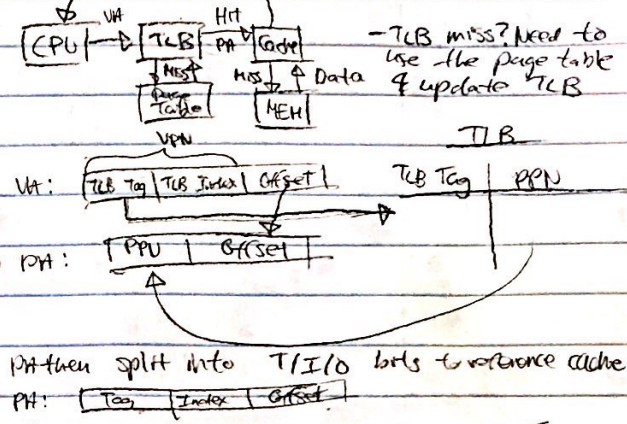 VA Hit
CPU TLB PA Cache
Miss Miss Data
Page
Table MEM
- TLB miss? Need to
use the page table
& update TLB
VPN
TLB
VA: TLB Tag | TLB Index | Offset
TLB Tag | PPN
PA: PPN | Offset
PA then split into T/I/O bits to reference cache
PA: Tag | Index | Offset